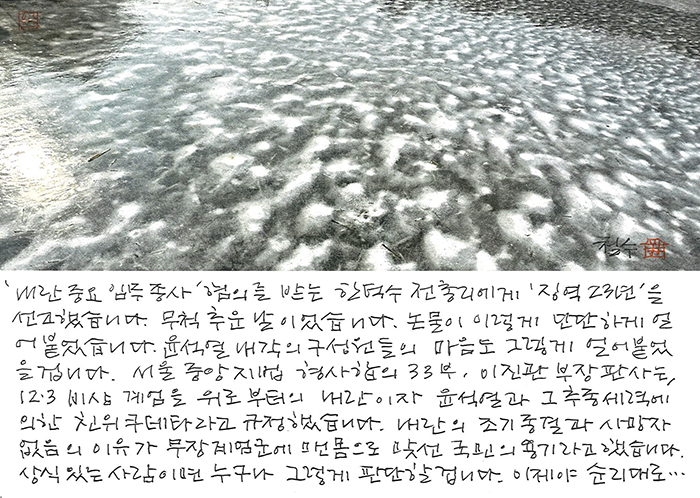 철수
'내란 중요 임무 종사' 혐의를 받는 한덕수 전 총리에게 '징역 23년'을
선고했습니다. 무척 추운 날이었습니다. 논물이 이렇게 단단하게 얼
어붙었습니다. 윤석열 내각의 구성원들의 마음도 그렇게 얼어붙었
을겁니다. 서울 중앙지법 형사합의 33부, 이진관 부장판사는,
12·3 비상 계엄을 위로부터의 내란이자 윤석열과 그 추종세력에
의한 친위쿠데타라고 규정했습니다. 내란의 조기종결과 사망자
없음의 이유가 무장계엄군에 맨몸으로 맞선 국민의 용기라고 했습니다.
상식있는 사람이면 누구나 그렇게 판단할 겁니다. 이제야 순리대로…